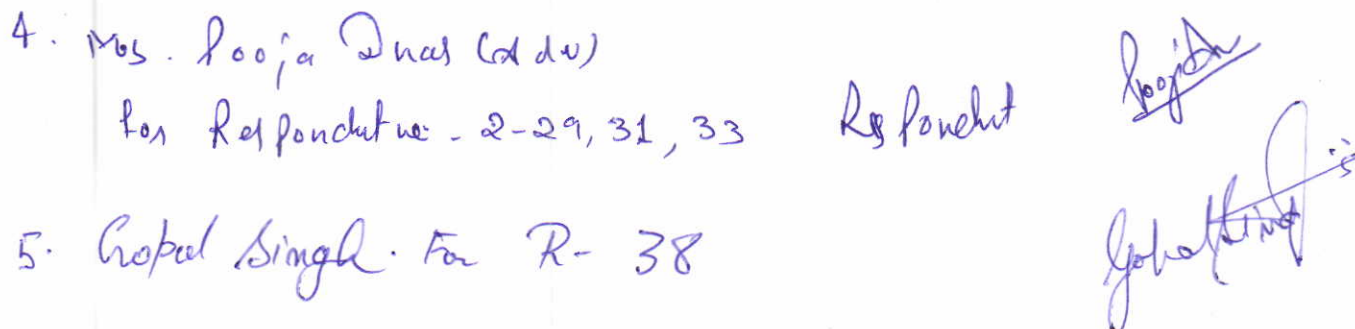 4. Mrs. Pooja Dhar (Adv)
for Respondent no - 2-29, 31, 33 Respondent
5. Gopal Singh. For R- 38
Gopal Singh